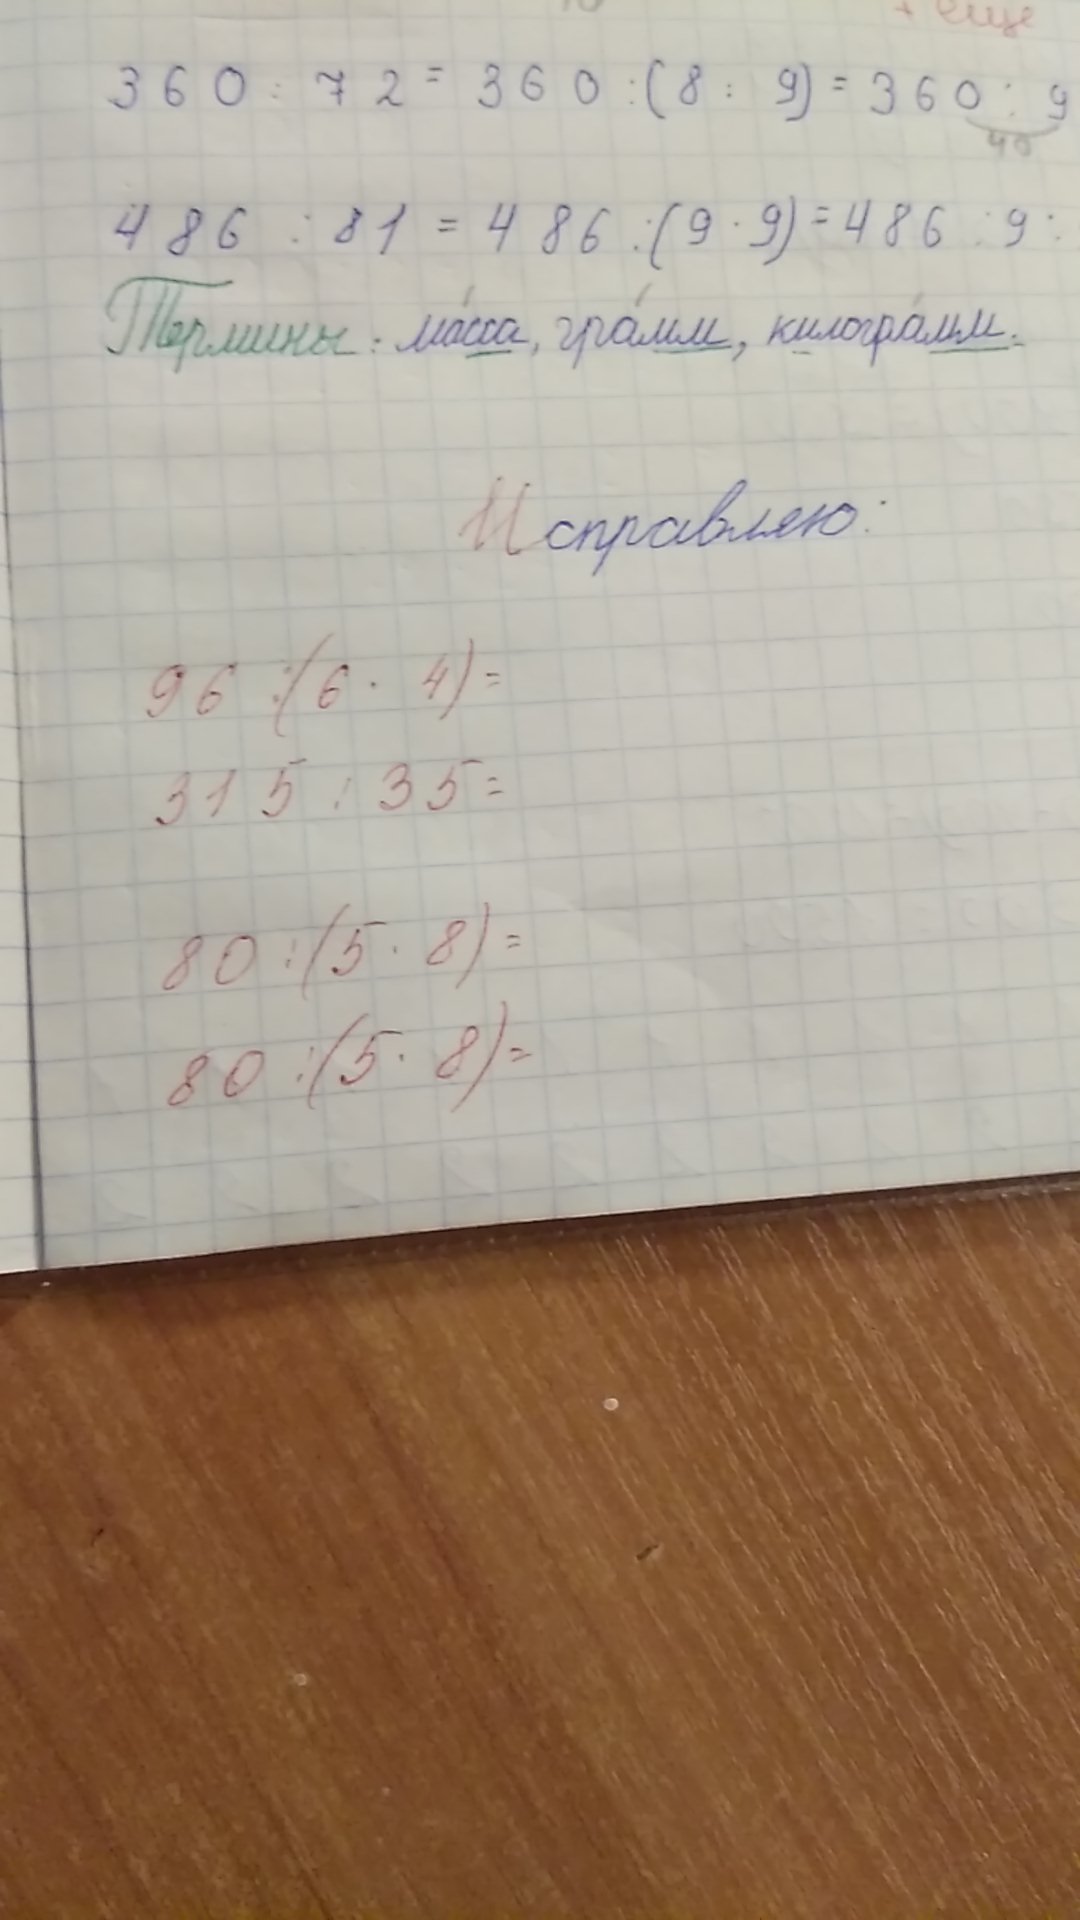 + еще
360 : 72 = 360 : (8 : 9) = 360 : 9
40
486 : 81 = 486 : (9 · 9) = 486 : 9 :
Термины : ма́сса, гра́мм, килогра́мм.
Исправляю:
96 : (6 · 4) =
315 : 35 =
80 : (5 · 8) =
80 : (5 · 8) =